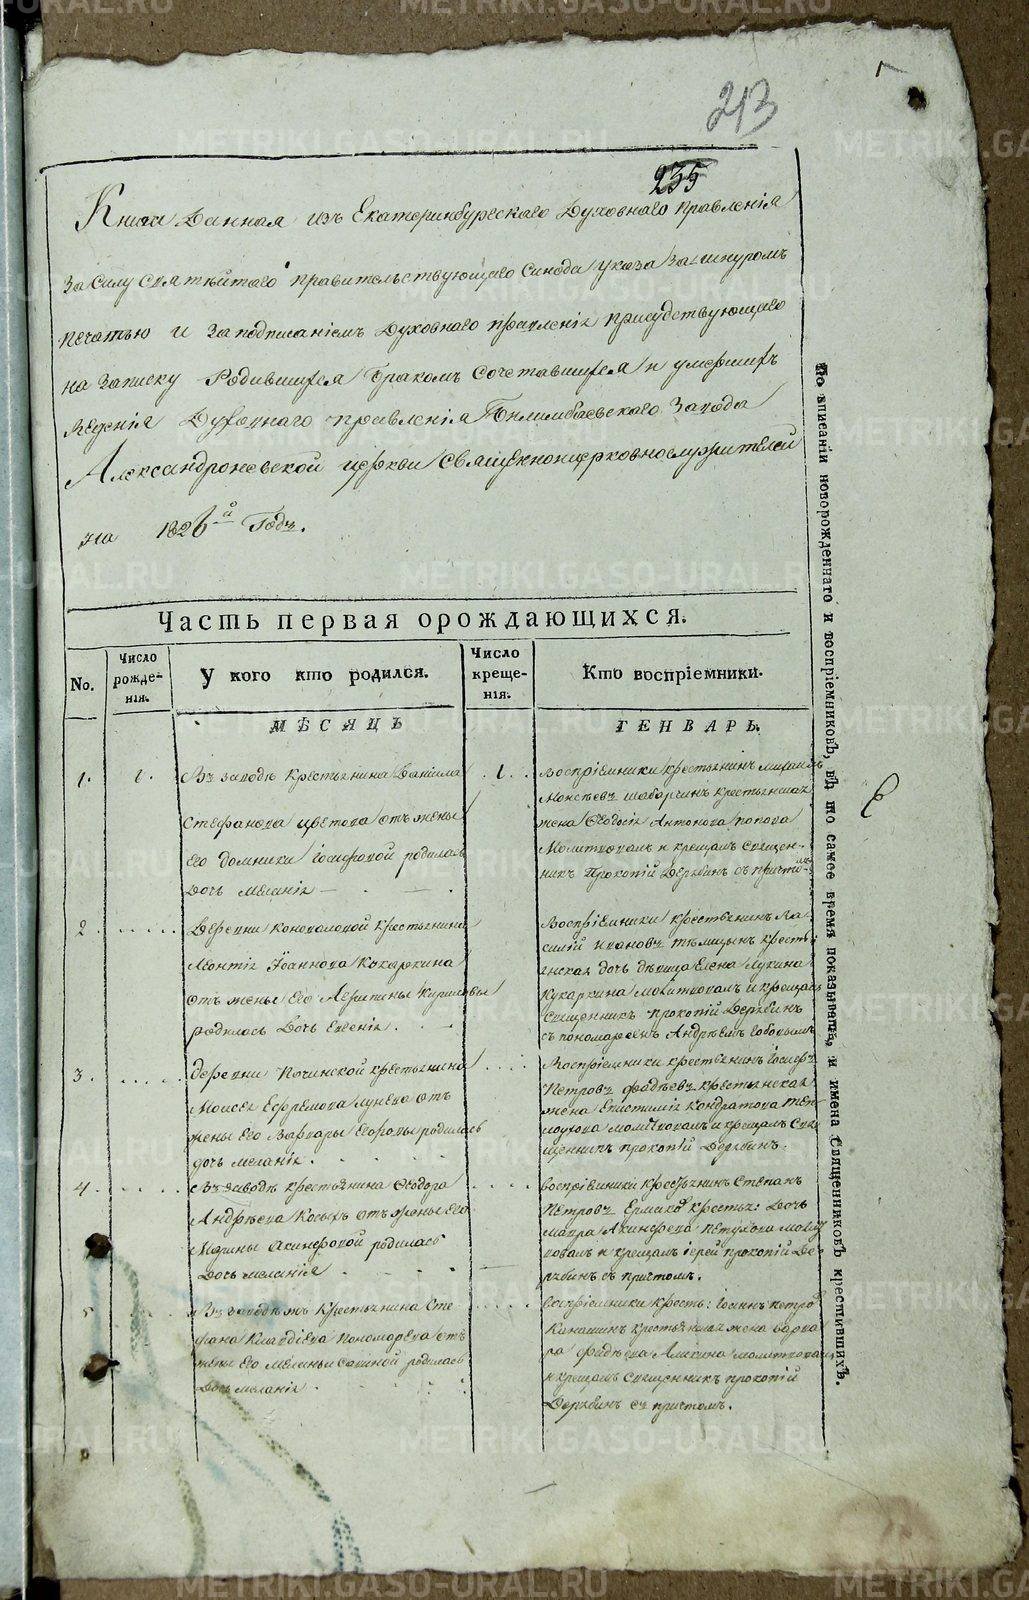 213
235
Книга Данная изъ Екатеринбургскаго Духовнаго правленія
За силу святѣйшаго правительствующаго Синода указа За шнуромъ
печатью и Заподписаніемъ Духовнаго правленія присудствующаго
на Записку Родившихся бракомъ сочетавшихся и умершихъ
вѣденія Духовнаго правленія Билимбаевскаго Завода
Александроневской церкви священноцерковнослужителей
на 1826й Годъ.
Часть первая орождающихся.
No.
Число рожде-нія.
У кого кто родился.
Число креще-нія.
Кто воспріемники.
МѢСЯЦЪ
ГЕНВАРЬ.
1. 1. Въ заводѣ крестьянина Данила
Стефанова цветова отъ жены
Его домники Іосифовой родилась
дочь Меланія
1. воспріемники крестьянинъ Михаилъ
Моисѣевъ шабарчинъ крестьянская
жена Ѳеодосія Антонова попова
Молитвовалъ и крещалъ Священ-
никъ Прокопій Дерябинъ съ причтомъ
2. Деревни коноваловой крестьянина
Леонтія Іоаннова Кукаркина
отъ жены Его Агрипины Кириловы
родилась Дочь Евгенія.
Воспріемники крестьянинъ Ва
силій ивановъ крестья
янская дочь дѣвица Елена Лукина
Кукаркина Молитвовалъ и крещалъ
Священникъ прокопій Дерябинъ
съ пономаремъ Андрѣемъ
3. деревни Починской крестьянина
Моисея Ефремова лунева отъ
жены Его Варвары Егоровы родилась
дочь меланія.
Воспріемники крестьянинъ Іосифъ
Петровъ фадѣевъ крестьянская
жена Епистимія Кондратова
молитвовалъ и крещалъ Свя
щенникъ прокопій Дерябинъ.
4. Въ заводѣ крестьянина Ѳеодора
Андрѣева Косыхъ отъ жены Его
Марины Акинфовой родилась
Дочь меланія
воспріемники крестьянинъ Степанъ
Петровъ крестья: Дочь
мавра Акинфова Петухова молит
вовалъ и крещалъ іерей прокопій Де
рябинъ съ причтомъ.
5. Въ заводѣ жъ крестьянина Сте
фана Клавдіева Пономарева отъ
жены Его Меланьи Савиной родилась
Дочь меланія
воспріемники кресть: іоаннъ петровъ
Кинашинъ крестьянская жена варва
ра фадѣева Алякина молитвовалъ
и крещалъ Священникъ прокопій
Дерябинъ съ причтомъ.
По вписаніи новорожденнаго и воспріемниковъ, въ то самое время показывать, и имена Священниковъ крестившихъ.
METRIKI.GASO-URAL.RU